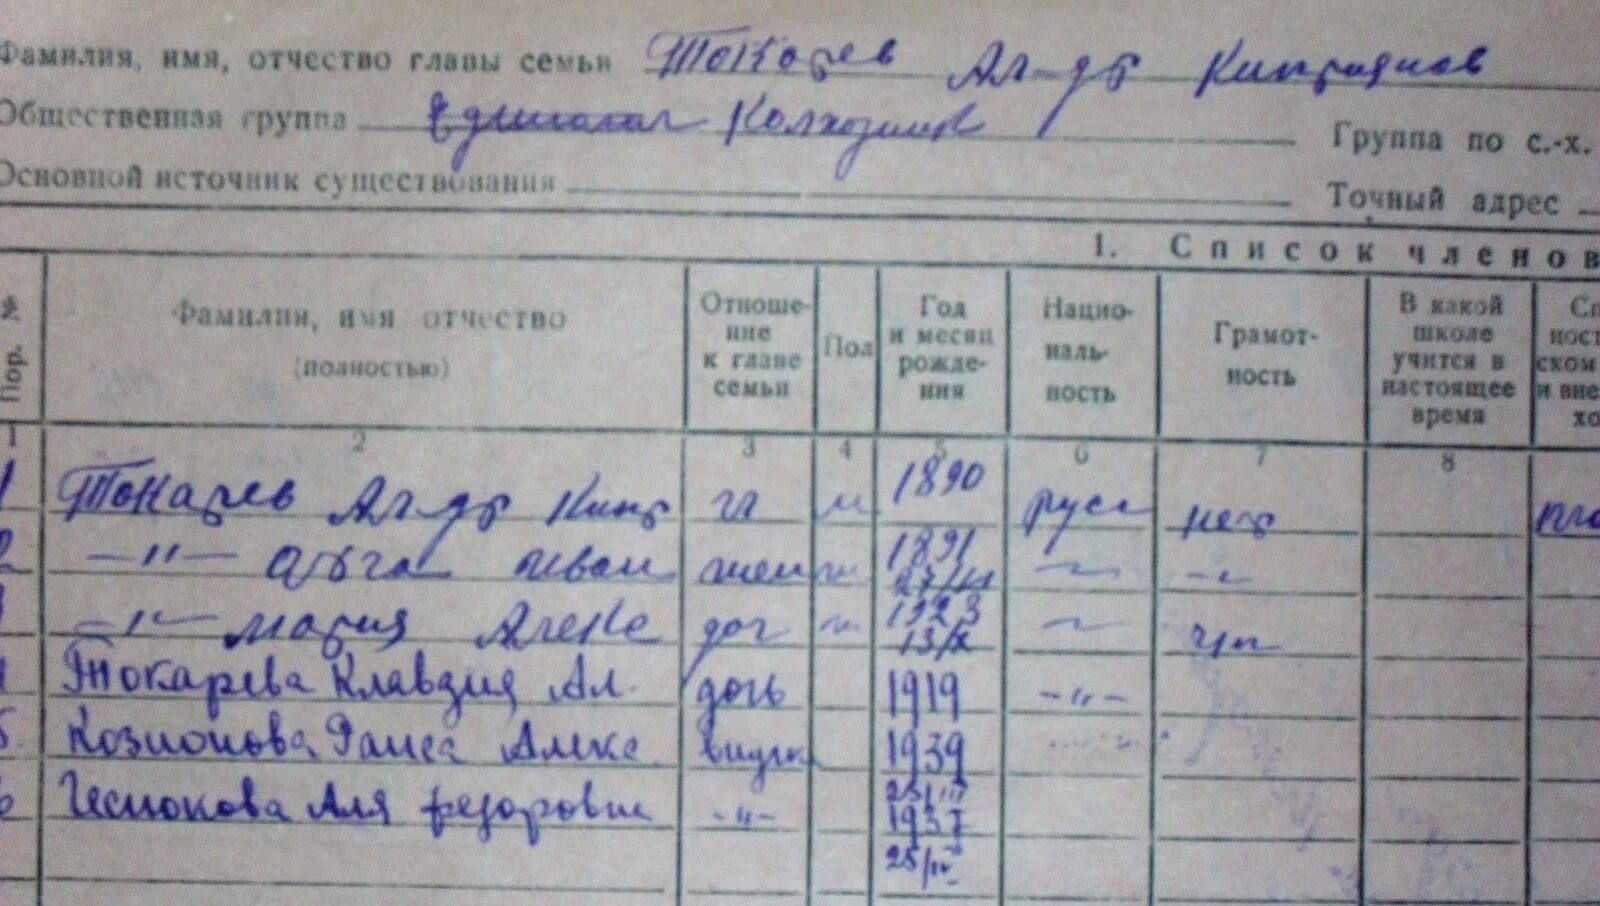 Фамилия, имя, отчество главы семьи Токарев Ал-др Киприянов
Общественная группа Колхозник Группа по с.-х.
Основной источник существования Точный адрес
1. Список членов
№ Пор. Фамилия, имя отчество (полностью) Отноше-ние к главе семьи Пол Год и месяц рожде-ния Нацио-наль-ность Грамот-ность В какой школе учится в настоящее время
1 2 3 4 5 6 7 8
1 Токарев Ал-др Кипр гл м 1890 русс негр
2 —"— Ольга Иван жен ж 1891 27/VII
—"— Мария Алекс доч ж 1923 13/X
Токарева Клавдия Ал. дочь 1919 -"-
5. Раиса Алекс. внучка 1939 23/III
6 Чеснокова Аля Федоровн -"- 1937 25/IV